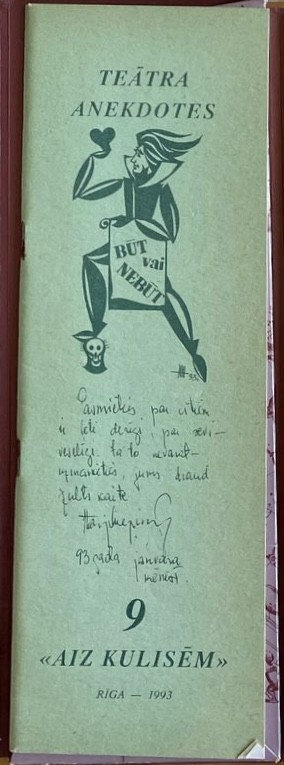 TEĀTRA
ANEKDOTES
BŪT
vai
NEBŪT
Pasmieties par citiem
ir ļoti derīgi, par sevi –
veselīgi. Ja to nevarat
jums draud
gulta kaite
93. gada janvāra
mēnesī.
9
«AIZ KULISĒM»
RĪGA — 1993